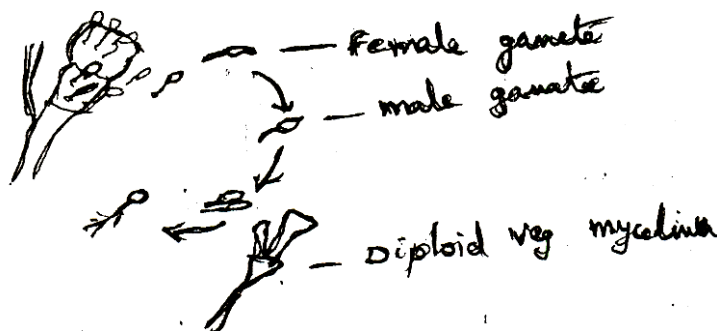 Female gamete
male gamatee
Diploid veg mycelium